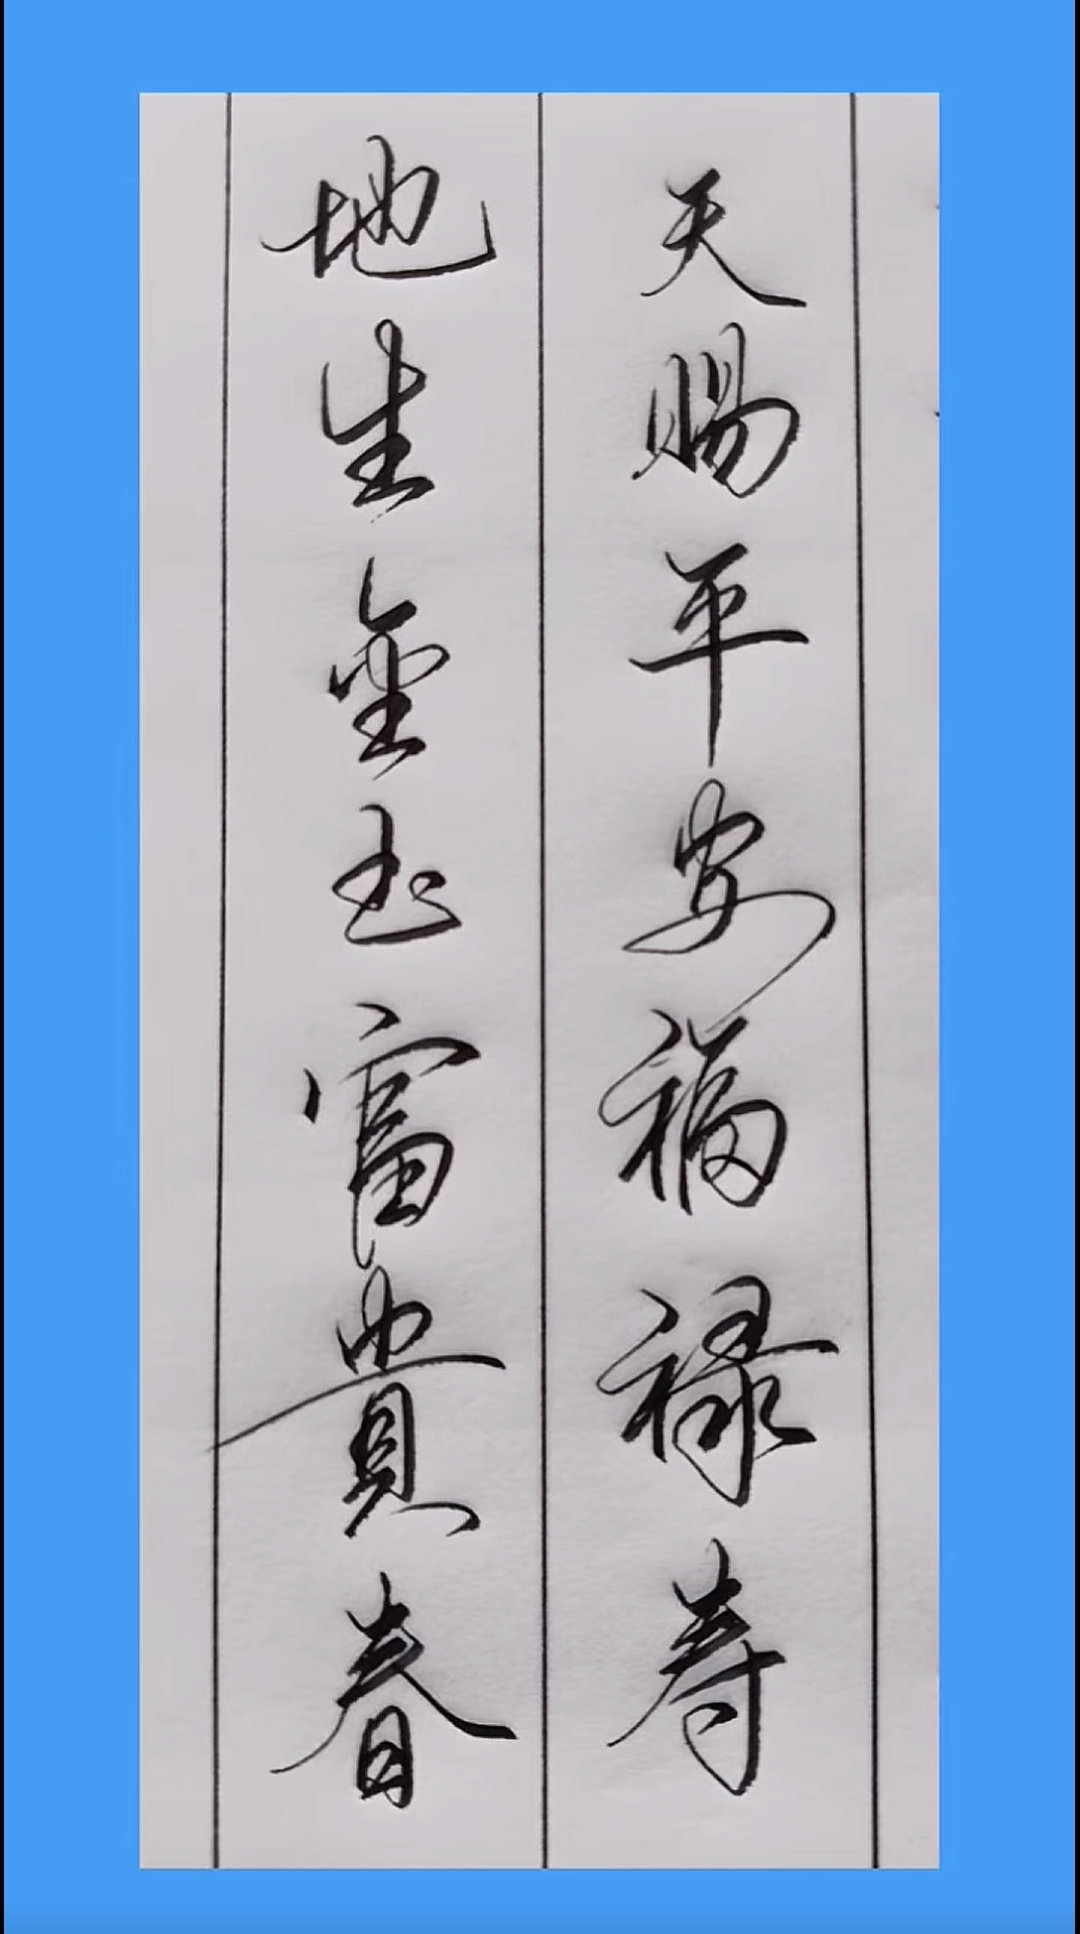 天赐平安福禄寿
地生金玉富贵春